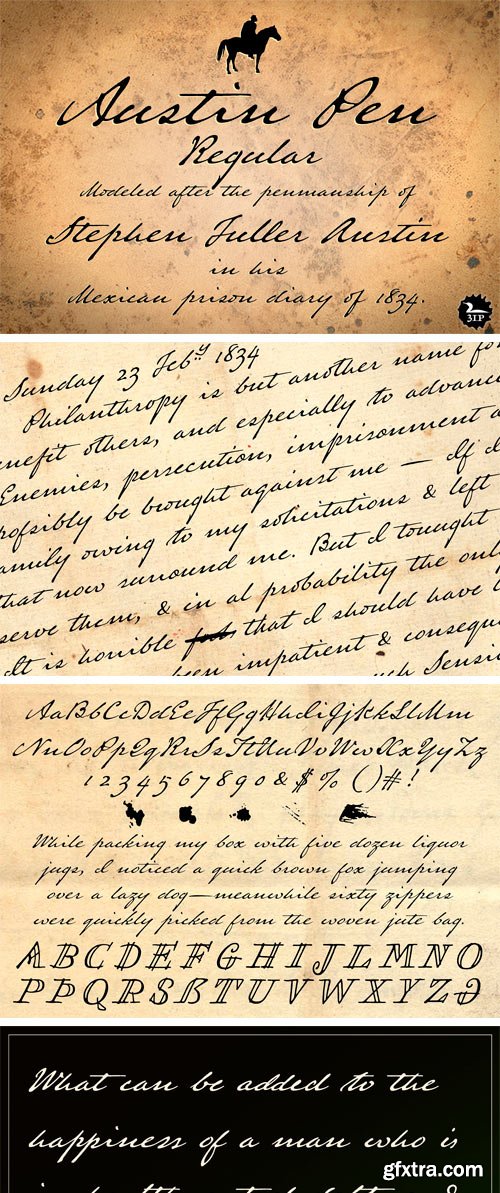 Austin Pen
Regular
Modeled after the penmanship of
Stephen Fuller Austin
in his
Mexican prison diary of 1834.
3IP
Sunday 23 Feby 1834
Philanthropy is but another name for
enefit others, and especially to advance
Enemies, persecution, imprisonment a
ofsibly be brought against me — If I
amily owing to my solicitations & left
that now surround me. But I tought
serve them, & in al probability the only
It is horrible that I should have
been impatient & conseque
ch Sensi
AaBbCcDdEeFfGgHhIiJjKkLlMm
NnOoPpQqRrSsTtUuVvWwXxYyZz
1234567890&$%()#!
While packing my box with five dozen liquor
jugs, I noticed a quick brown fox jumping
over a lazy dog—meanwhile sixty zippers
were quickly picked from the woven jute bag.
ABCDEFGHIJLMNO
PÞQRSßTUVWXYZ
What can be added to the
happiness of a man who is
gfxtra.com